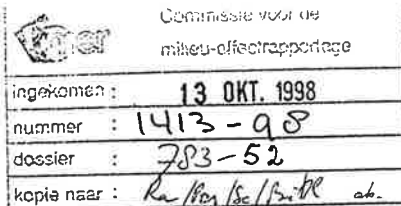 mer
Commissie voor de
milieu-effectrapportage
ingekomen : 13 OKT. 1998
nummer : 1413-98
dossier : 783-52
kopie naar : Ra/ /Sc/Bibl